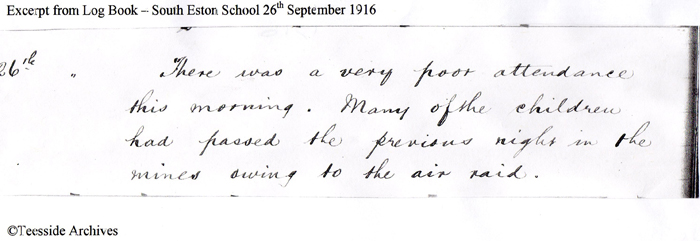 Excerpt from Log Book – South Eston School 26th September 1916
26th " There was a very poor attendance
this morning. Many of the children
had passed the previous night in the
mines owing to the air raid.
©Teesside Archives